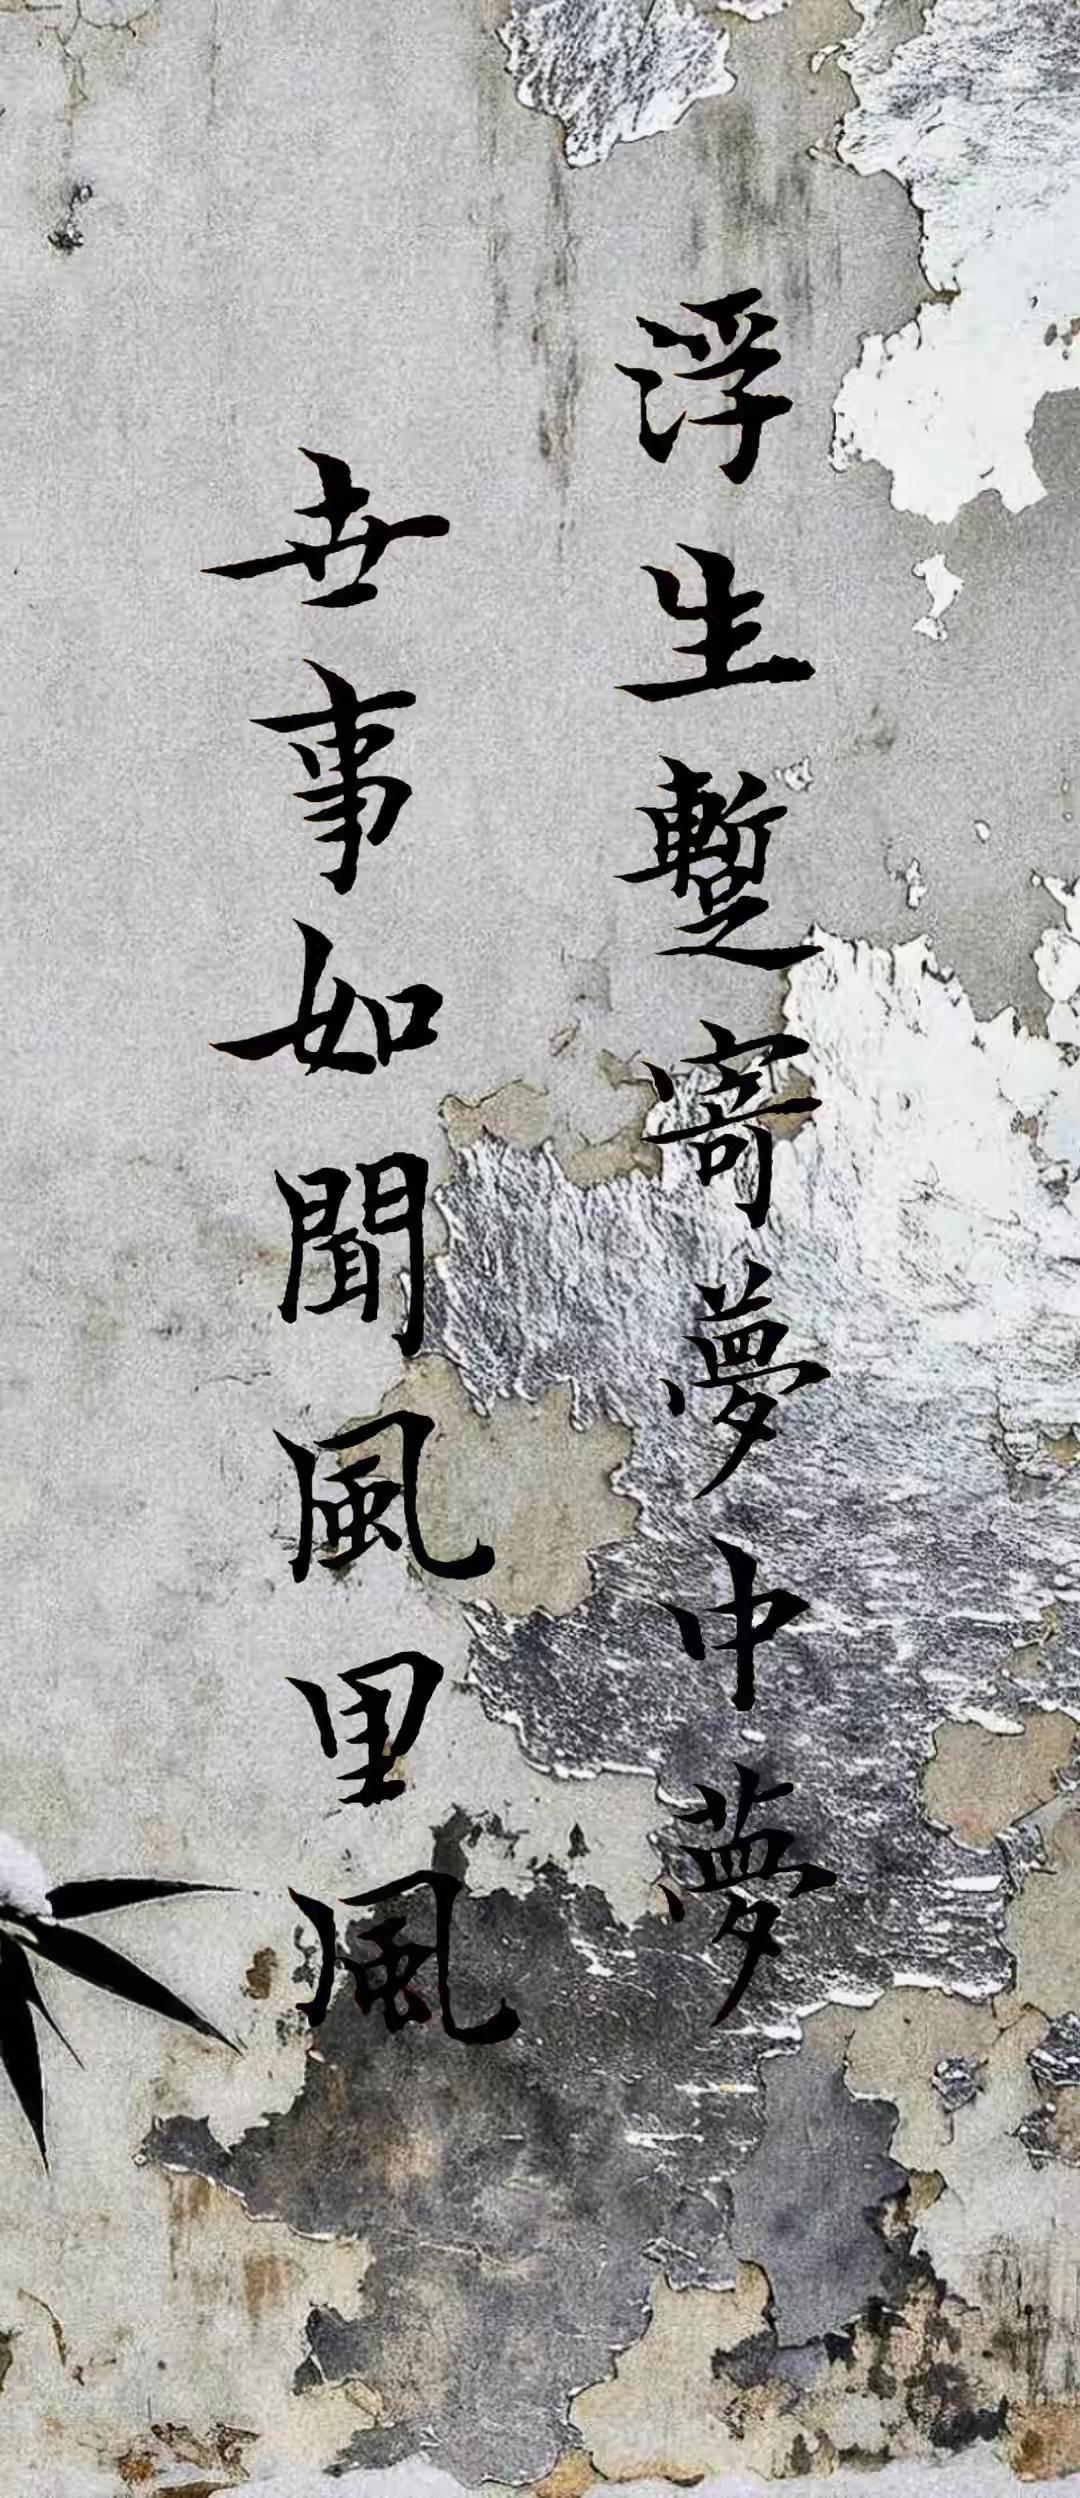 浮生蹔寄夢中夢
世事如聞風里風